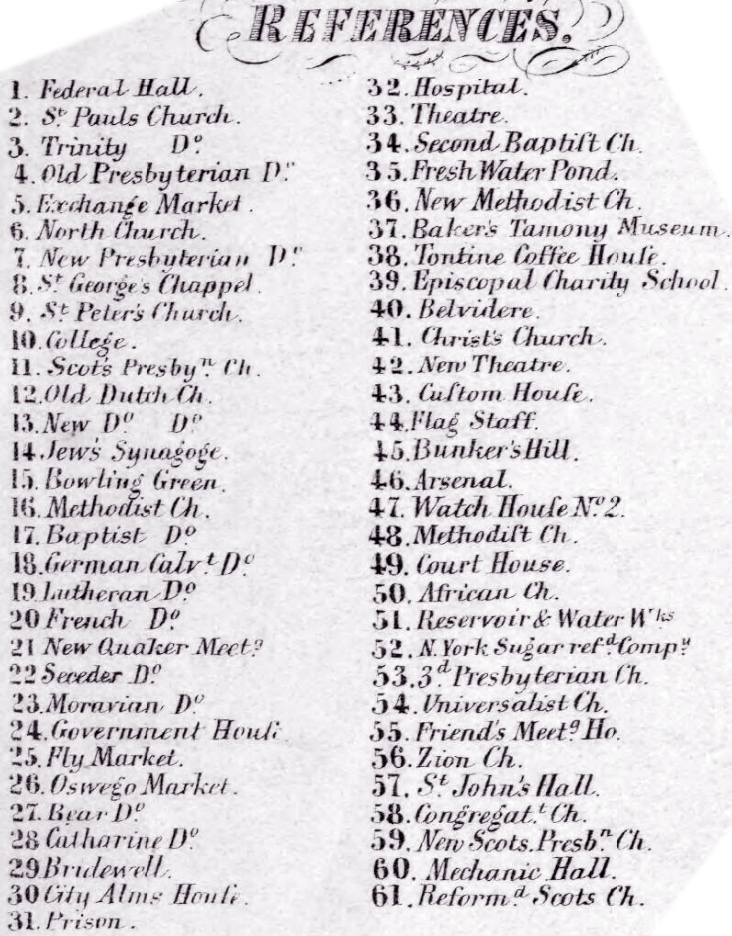 REFERENCES.
1. Federal Hall.
2. St Pauls Church.
3. Trinity Do.
4. Old Presbyterian Do.
5. Exchange Market.
6. North Church.
7. New Presbyterian Do.
8. St George's Chappel.
9. St Peter's Church.
10. College.
11. Scots Presbyn. Ch.
12. Old Dutch Ch.
13. New Do Do
14. Jew's Synagoge.
15. Bowling Green.
16. Methodist Ch.
17. Baptist Do
18. German Calvt. Do
19. Lutheran Do
20 French Do
21 New Quaker Meetg
22 Seceder Do
23. Moravian Do
24. Government Houſe
25. Fly Market.
26. Oswego Market.
27. Bear Do
28 Catharine Do
29 Bridewell.
30 City Alms Houſe.
31. Prison.
32. Hospital.
33. Theatre.
34. Second Baptiſt Ch.
35. Fresh Water Pond.
36. New Methodist Ch.
37. Baker's Tamony Museum.
38. Tontine Coffee Houſe.
39. Episcopal Charity School.
40. Belvidere.
41. Christ's Church.
42. New Theatre.
43. Cuſtom Houſe.
44. Flag Staff.
45. Bunker's Hill.
46. Arsenal.
47. Watch Houſe No. 2.
48. Methodiſt Ch.
49. Court House.
50. African Ch.
51. Reservoir & Water Wks
52. N. York Sugar refd. Compy
53. 3d Presbyterian Ch.
54. Universalist Ch.
55. Friend's Meetg Ho.
56. Zion Ch.
57. St John's Hall.
58. Congregat.t Ch.
59. New Scots. Presbn. Ch.
60. Mechanic Hall.
61. Reformd. Scots Ch.